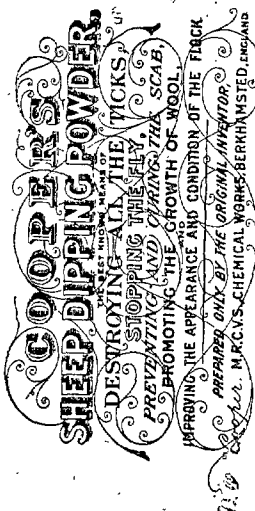 COOPER'S
SHEEP DIPPING POWDER.
THE BEST KNOWN MEANS OF
DESTROYING ALL THE TICKS
STOPPING THE FLY,
PREVENTING AND CURING THE SCAB,
PROMOTING THE GROWTH OF WOOL,
IMPROVING THE APPEARANCE AND CONDITION OF THE FLOCK.
PREPARED ONLY BY THE ORIGINAL INVENTOR,
Cooper. M.R.C.V.S. CHEMICAL WORKS, BERKHAMSTED, ENGLAND.